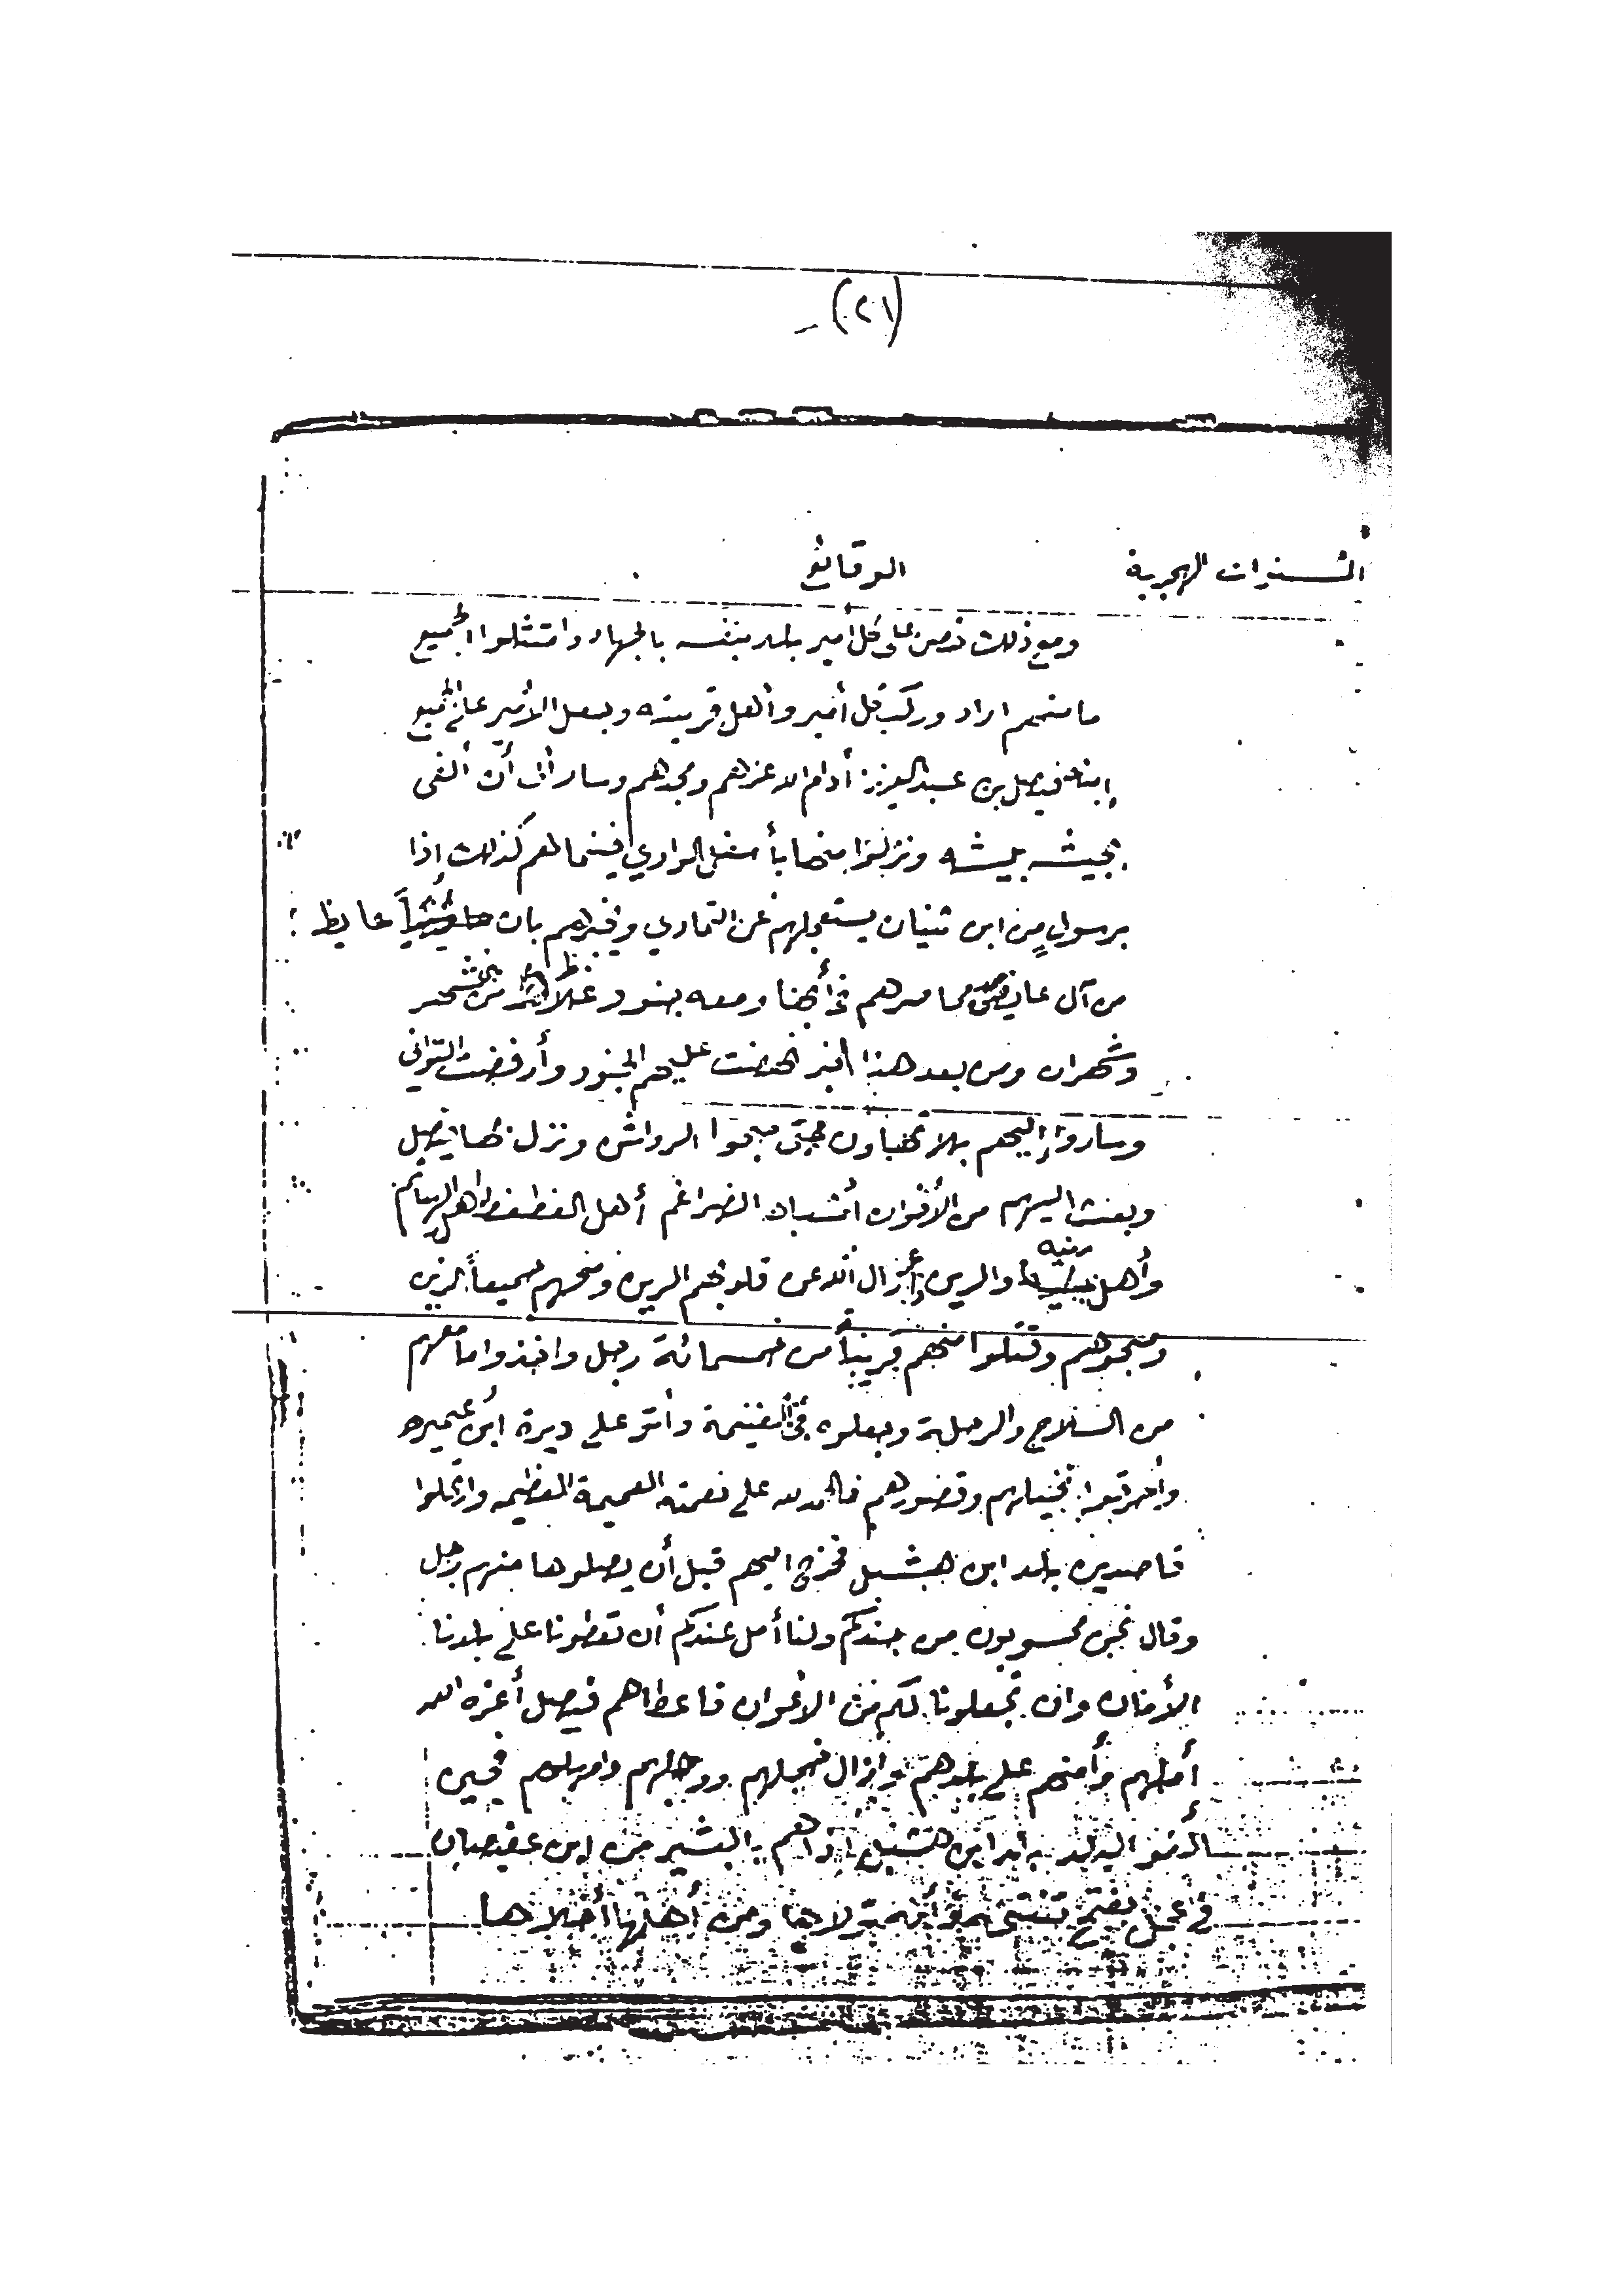 (٢١) –
السنوات الهجرية الوقائع
ومع ذلك نص على كل أمير بلد بنفسه بالجهاد وامتثلوا الجميع
ما منهم اراد وركب كل أمير وأهل قريته وجعل الأمير على الجميع
إبنه فيصل بن عبد العزيز أدام الله عزهم ومجدهم وسار الى أن ألفى
بجيشه بيشه ونزلوا منها بأسفل الوادي فبينما هم كذلك إذا
برسول من ابن ثنيان يستعجلهم عن التمادي ويخبرهم بان عايظ
من آل عايض محاصرهم في أبها ومعه جنود من
وشهران ومن بعد هذا الخبر نهضت عليهم الجنود وأرفضت التواني
وساروا إليهم بلا تهاون حتى صبحوا الرواش ونزل فيصل
وبعث اليهم من الأخوان أشباه الضراغم أهل الغطغط واهل
وأهل رنيه والرين أزال الله عن قلوبهم الرين ومنحهم جميعاً الزين
وصبحوهم وقتلوا منهم قريباً من خمسمائة رجل واخذوا ما معهم
من السلاح والرحلة وجعلوه في الغنيمة وأتو على ديرة ابن عميره
وأحرقوا نخيلهم وقصورهم فالحمد لله على نعمته العميمة العظيمه وارتحلوا
قاصدين بلد ابن هشبل فخرج اليهم قبل أن يصلوها منهم رجل
وقال نحن محسوبون من جندكم ولنا أمل عندكم أن تعطونا على بلدنا
الأمان وان تجعلونا لكم من الاخوان فاعطاهم فيصل أعزه الله
أملهم وأمنهم على بلدهم وازال خجلهم ووجلهم وامهلهم فحين
بلد ابن هشبل إذاهم بالبشير من ابن عفيصان
في ومن أهلها أخلاها